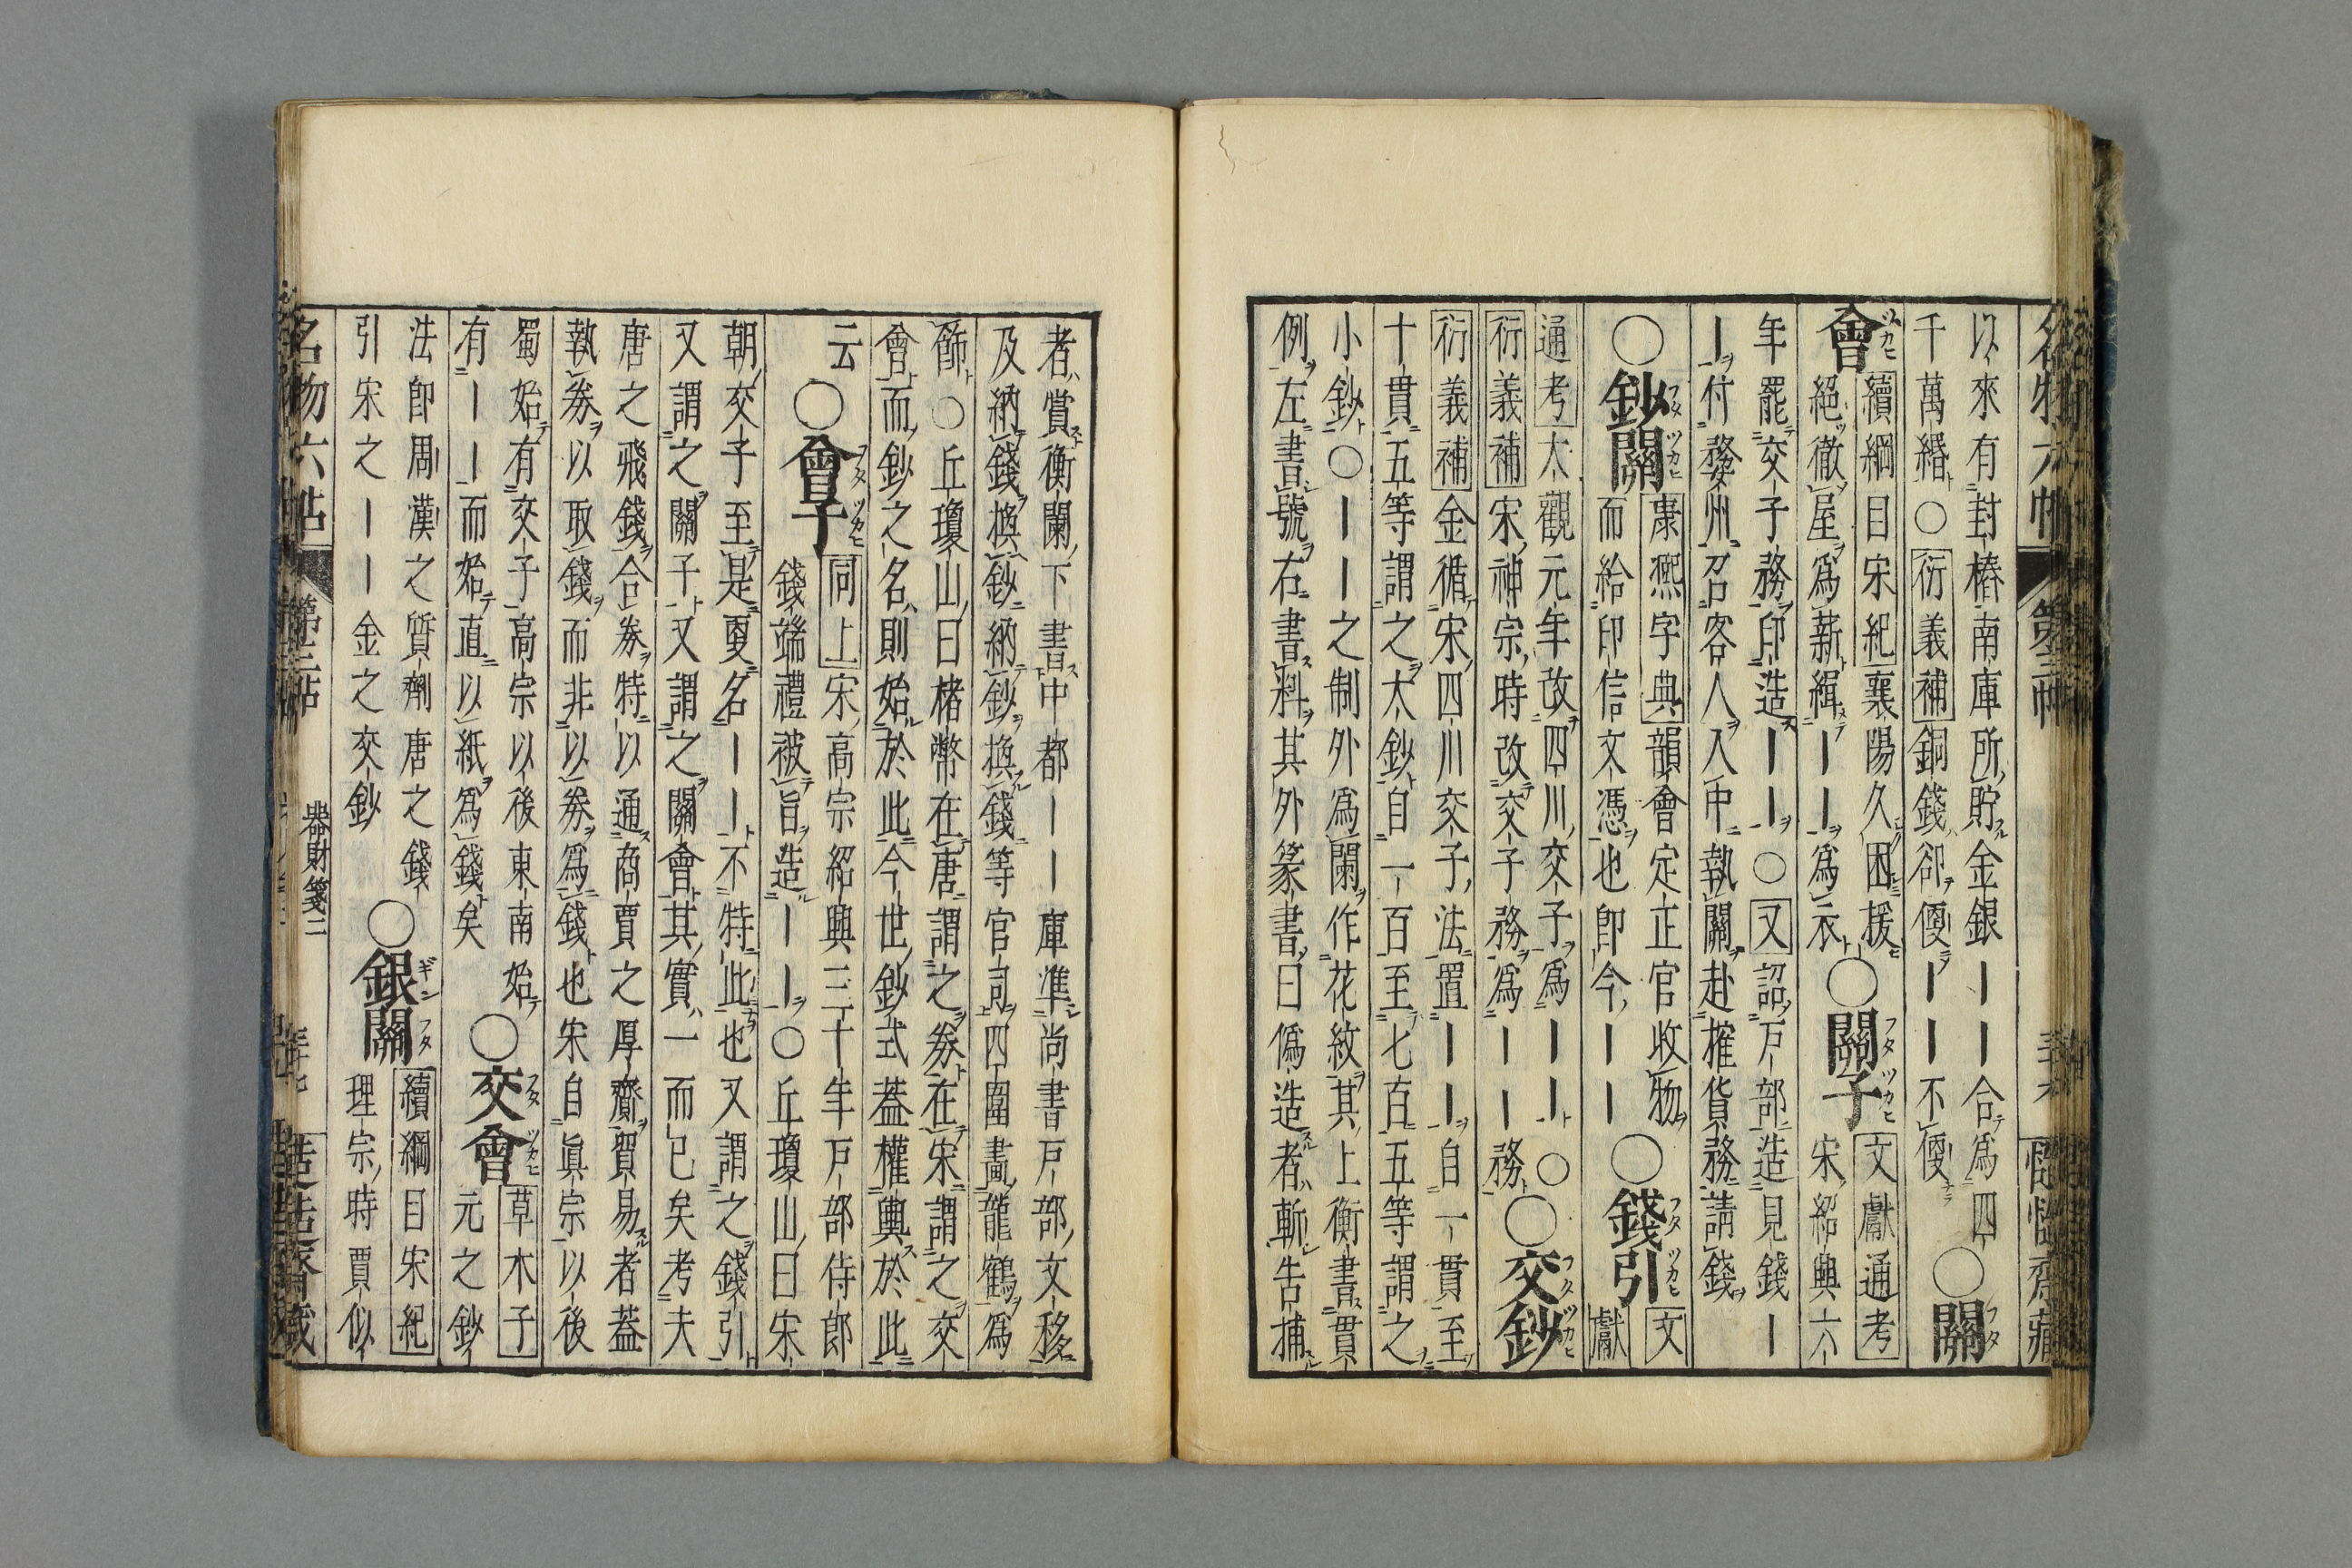 名物六帖 第三帖 三十六 慥慥齋藏
以來有封樁南庫所貯金銀——合爲四
千萬緡○衍義補銅錢卻便——不便
○關
會
續綱目宋紀襄陽久困援
絕徹屋爲薪緝——爲衣
○關子
文獻通考
宋紹興六
年罷交子務印造——○又詔戶部造見錢—
—付婺州召客人入中執關赴榷貨務請錢
○鈔關
康熙字典韻會定正官收物
而給印信文憑也即今——
○錢引
文
獻
通考太觀元年改四川交子爲——○
衍義補宋神宗時改交子務爲——務
○交鈔
衍義補金循宋四川交子法置——自一貫至
十貫五等謂之大鈔自一百至七百五等謂之
小鈔○——之制外爲闌作花紋其上衡書貫
例左書號右書料其外篆書曰僞造者斬告捕
者賞衡闌下書中都——庫準尚書戶部文移
及納錢換鈔納鈔換錢等官司四圍畫龍鶴爲
飾○丘瓊山曰楮幣在唐謂之券在宋謂之交
會而鈔之名則始於此今世鈔式蓋權輿於此
云
○會子
同上宋高宗紹興三十年戶部侍郎
錢端禮被旨造——○丘瓊山曰宋
朝交子至是更名——不特此也又謂之錢引
又謂之關子又謂之關會其實一而已矣考夫
唐之飛錢合券特以通商賈之厚齎貿易者蓋
執券以取錢而非以券爲錢也宋自眞宗以後
蜀始有交子高宗以後東南始
有——而始直以紙爲錢矣
○交會
草木子
元之鈔
法卽周漢之質劑唐之錢
引宋之——金之交鈔
○銀關
續綱目宋紀
理宗時賈似
名物六帖 第三帖 器財箋二 三十七 慥慥齋藏